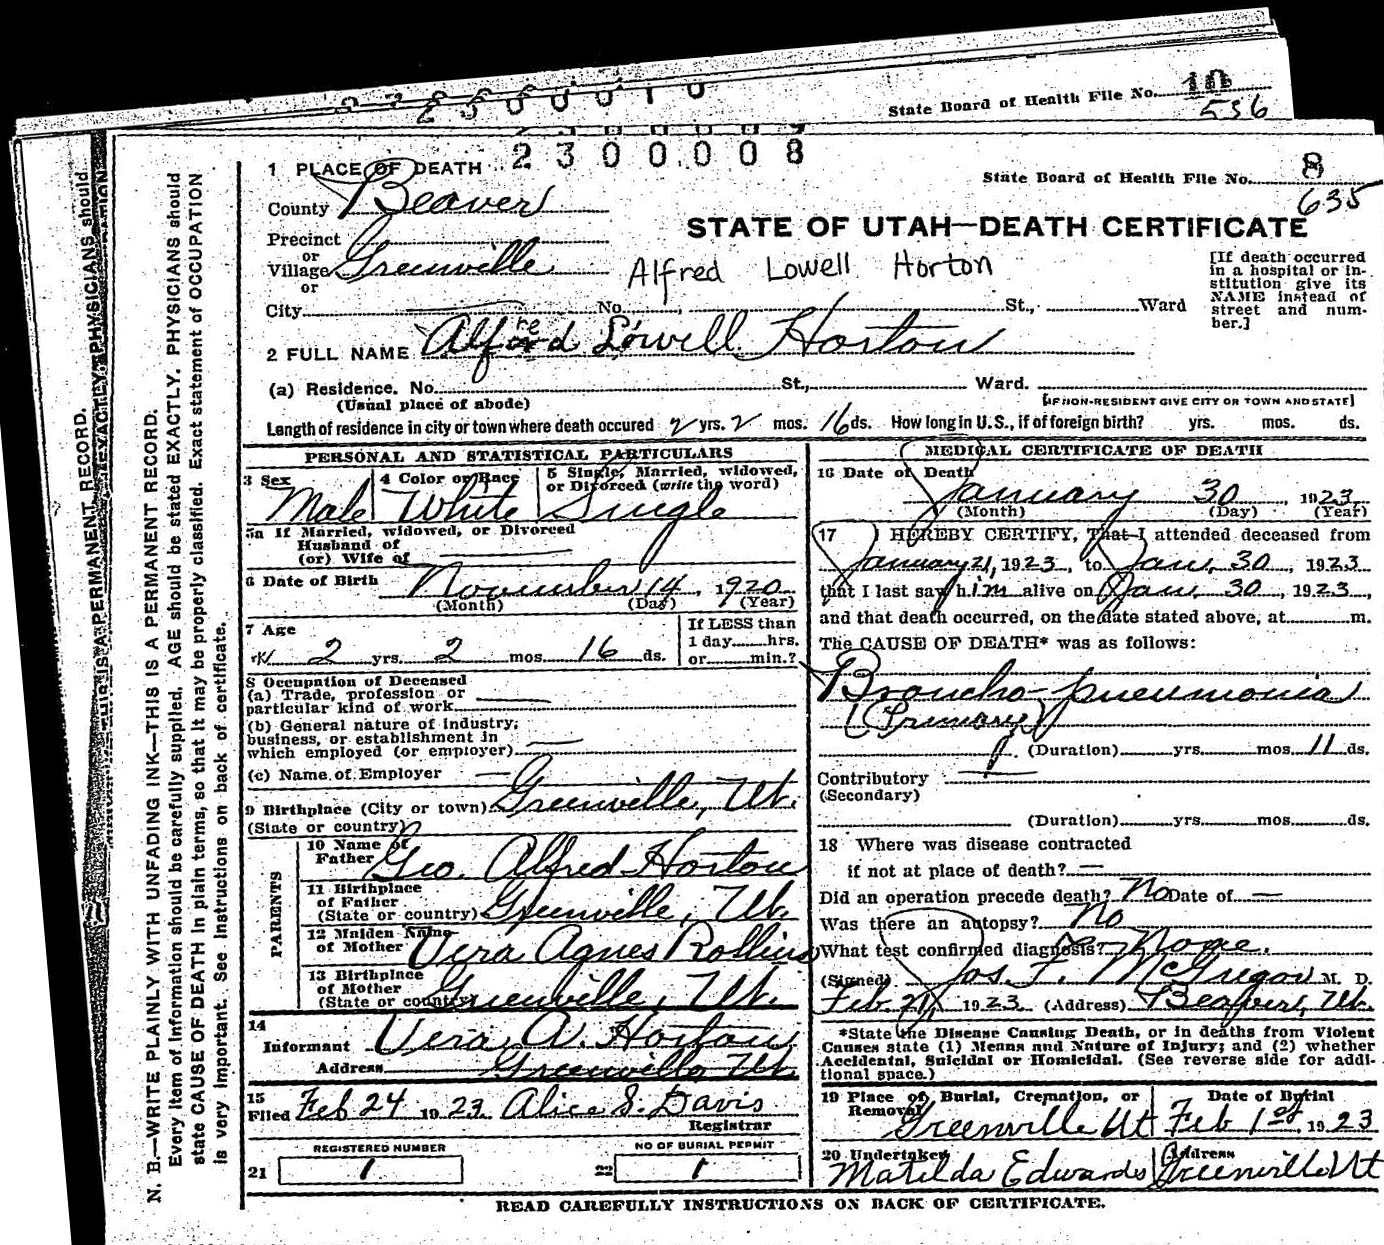 State Board of Health File No. 10
536
2300008
1 PLACE OF DEATH
State Board of Health File No. 8
635
County Beaver
STATE OF UTAH—DEATH CERTIFICATE
Precinct
or
Village Greenville
or
Alfred Lowell Horton
[If death occurred
in a hospital or in-
stitution give its
NAME instead of
street and num-
ber.]
City No. St., Ward
2 FULL NAME Alfred Lowell Horton
(a) Residence. No. St., Ward.
(Usual place of abode) [IF NON-RESIDENT GIVE CITY OR TOWN AND STATE]
Length of residence in city or town where death occured 2 yrs. 2 mos. 16 ds. How long in U.S., if of foreign birth? yrs. mos. ds.
PERSONAL AND STATISTICAL PARTICULARS
3 Sex
Male
4 Color or Race
White
5 Single, Married, widowed,
or Divorced (write the word)
Single
5a If Married, widowed, or Divorced
Husband of
(or) Wife of
6 Date of Birth November 14, 1920
(Month) (Day) (Year)
7 Age
2 yrs. 2 mos. 16 ds.
If LESS than
1 day hrs.
or min.?
8 Occupation of Deceased
(a) Trade, profession or
particular kind of work
(b) General nature of industry,
business, or establishment in
which employed (or employer)
(c) Name of Employer
9 Birthplace (City or town) Greenville, Ut.
(State or country)
PARENTS
10 Name of
Father Geo. Alfred Horton
11 Birthplace
of Father
(State or country) Greenville, Ut.
12 Maiden Name
of Mother Vera Agnes Rollins
13 Birthplace
of Mother
(State or country) Greenville, Ut.
14
Informant Vera A. Horton
Address Greenville Ut.
15
Filed Feb 24 1923 Alice S. Davis
Registrar
REGISTERED NUMBER NO OF BURIAL PERMIT
21 1 22 1
MEDICAL CERTIFICATE OF DEATH
16 Date of Death
January 30, 1923
(Month) (Day) (Year)
17 I HEREBY CERTIFY, That I attended deceased from
January 21, 1923, to Jan. 30, 1923
that I last saw him alive on Jan. 30, 1923,
and that death occurred, on the date stated above, at m.
The CAUSE OF DEATH* was as follows:
Broncho-pneumonia
(Primary)
(Duration) yrs. mos. 11 ds.
Contributory
(Secondary)
(Duration) yrs. mos. ds.
18 Where was disease contracted
if not at place of death? —
Did an operation precede death? No Date of —
Was there an autopsy? No
What test confirmed diagnosis? None.
(Signed) Jos. F. McGregor M. D.
Feb 21, 1923 (Address) Beaver, Ut.
*State the Disease Causing Death, or in deaths from Violent
Causes state (1) Menns and Nature of Injury; and (2) whether
Accidental, Suicidal or Homicidal. (See reverse side for addi-
tional space.)
19 Place of Burial, Cremation, or
Removal
Greenville Ut
Date of Burial
Feb 1st, 1923
20 Undertaker
Matilda Edwards
Address
Greenville Ut
READ CAREFULLY INSTRUCTIONS ON BACK OF CERTIFICATE.
N. B.—WRITE PLAINLY WITH UNFADING INK—THIS IS A PERMANENT RECORD.
Every item of information should be carefully supplied. AGE should be stated EXACTLY. PHYSICIANS should
state CAUSE OF DEATH in plain terms, so that it may be properly classified. Exact statement of OCCUPATION
is very important. See instructions on back of certificate.